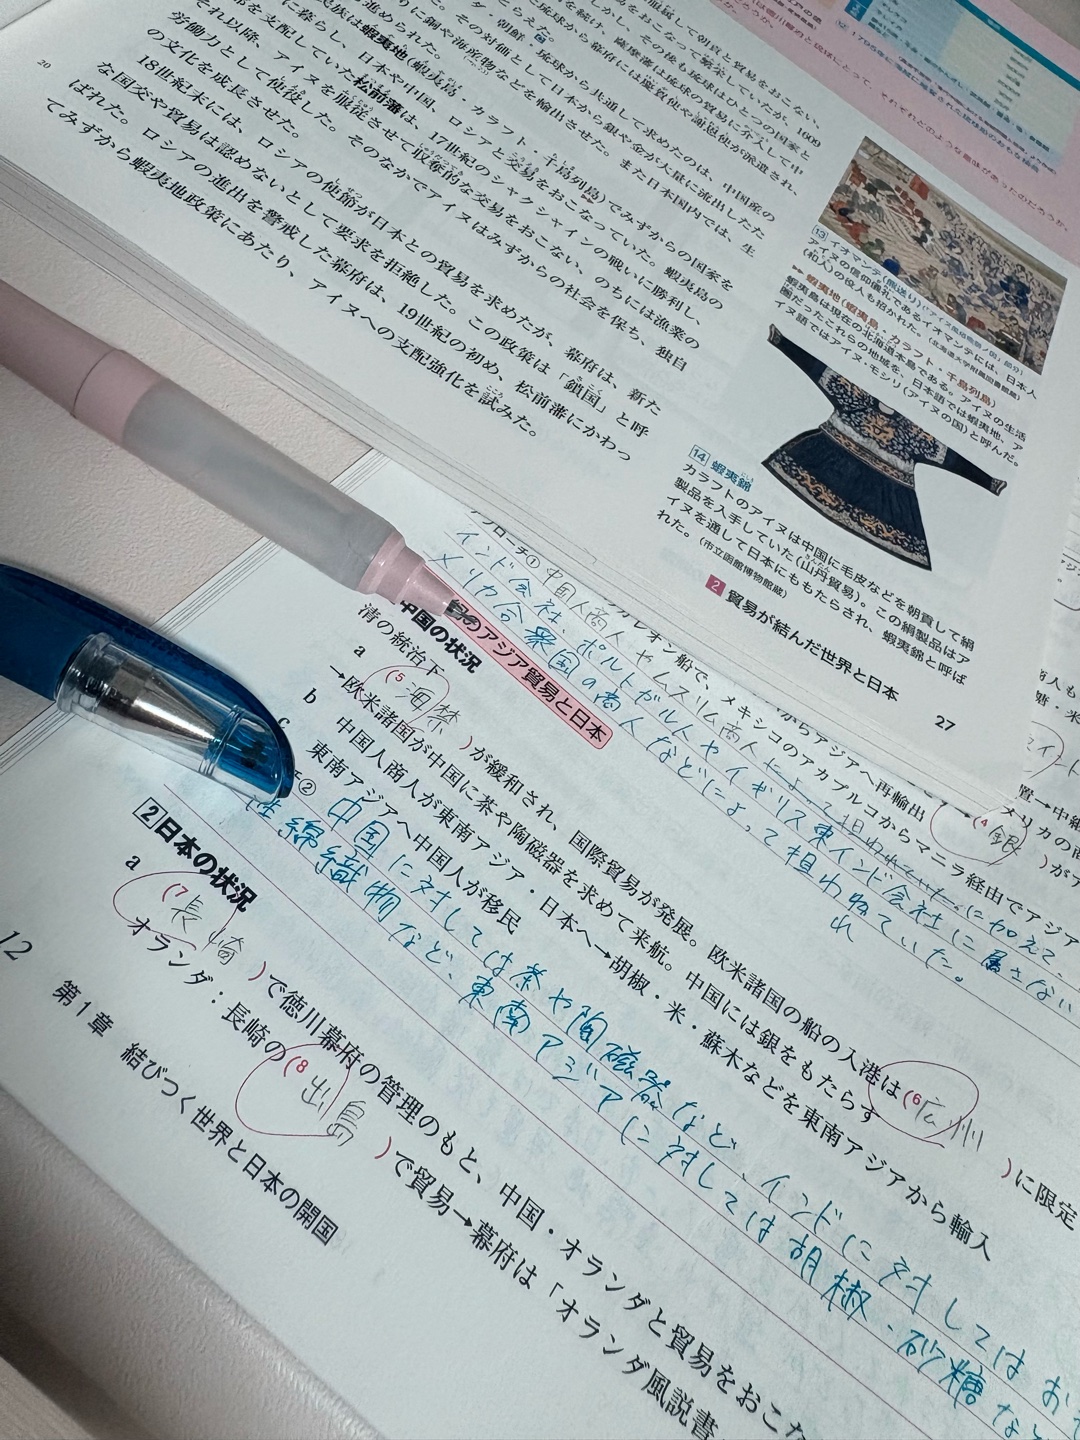 服属して朝貢と貿易をおこない、
貿易をおこなって繁栄していたが、1609
しかし、その後も琉球はひとつの国家と
を続け、薩摩藩は琉球の貿易に介入して中
琉球から幕府には慶賀使や謝恩使が派遣され、
とらえた。
ダ・朝鮮・琉球から共通して求めたのは、中国産の
た。その対価として日本から銀や金が大量に流出したた
りに銅や海産物などを輸出させた。また日本国内では、生
進められた。
民族は蝦夷地(蝦夷島・カラフト・千島列島)でみずからの国家を
に暮らし、日本や中国、ロシアと交易をおこなっていた。蝦夷島の
部を支配していた松前藩は、17世紀のシャクシャインの戦いに勝利し、
それ以降、アイヌを服従させて収奪的な交易をおこない、のちには漁業の
労働力として使役した。そのなかでアイヌはみずからの社会を保ち、独自
の文化を成長させた。
20
18世紀末には、ロシアの使節が日本との貿易を求めたが、幕府は、新た
な国交や貿易は認めないとして要求を拒絶した。この政策は「鎖国」と呼
ばれた。ロシアの進出を警戒した幕府は、19世紀の初め、松前藩にかわっ
てみずから蝦夷地政策にあたり、アイヌへの支配強化を試みた。
13 イオマンテ(熊送り)
アイヌの信仰儀礼であるイオマンテには、日本人
(和人)の役人も招かれた。(北海道大学附属図書館蔵)
蝦夷地(蝦夷島・カラフト・千島列島)
蝦夷島は現在の北海道本島である。アイヌの生活
圏だったこれらの地域を、日本語では蝦夷地、ア
イヌ語ではアイヌ・モシリ(アイヌの国)と呼んだ。
14 蝦夷錦
カラフトのアイヌは中国に毛皮などを朝貢して絹
製品を入手していた(山丹貿易)。この絹製品はア
イヌを通して日本にももたらされ、蝦夷錦と呼ば
れた。(市立函館博物館蔵)
2 貿易が結んだ世界と日本
27
からアジアへ再輸出
ガレオン船で、メキシコのアカプルコからマニラ経由でアジア
(4 銀
アプローチ① 中国人商人やムスリム商人によって担われていた。に加えて、
インド会社、ポルトガル人やイギリス東インド会社に属さない
メリカ合衆国の商人などによって担われていた。
のアジア貿易と日本
中国の状況
清の統治下
a (5 海禁 )が緩和され、国際貿易が発展。欧米諸国の船の入港は(6 広州 )に限定
→欧米諸国が中国に茶や陶磁器を求めて来航。中国には銀をもたらす
b 中国人商人が東南アジア・日本へ→胡椒・米・蘇木などを東南アジアから輸入
東南アジアへ中国人が移民
② 中国に対しては茶や陶磁器など、インドに対しては
綿織物など、東南アジアに対しては胡椒・砂糖など
2 日本の状況
a (7 長崎 )で徳川幕府の管理のもと、中国・オランダと貿易をおこな
オランダ:長崎の(8 出島 )で貿易→幕府は「オランダ風説書
12 第1章 結びつく世界と日本の開国